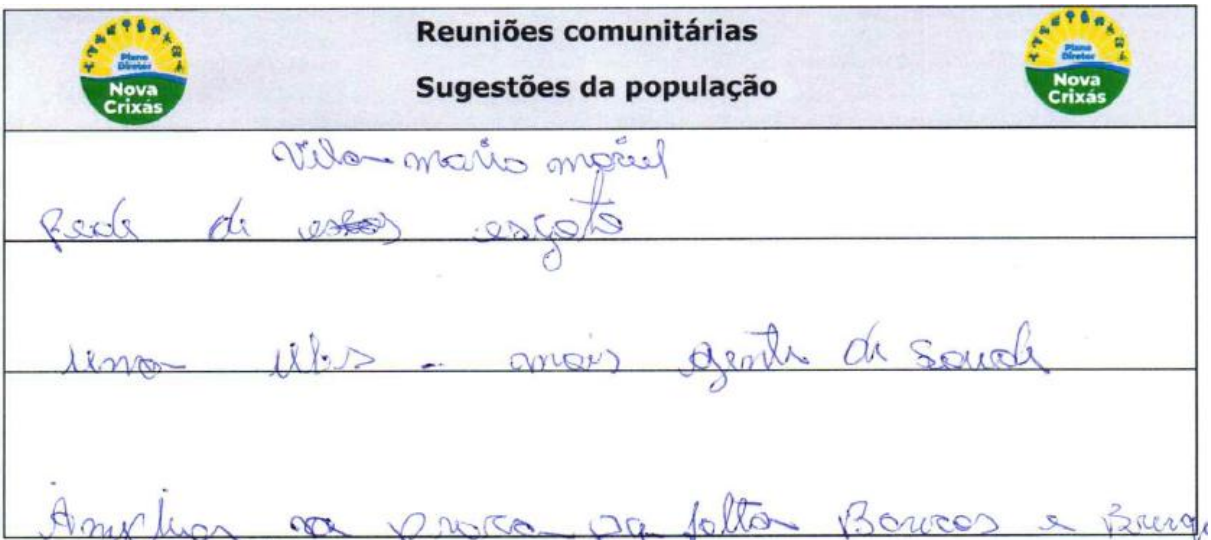 Plano
Diretor
Nova
Crixás
Reuniões comunitárias
Sugestões da população
Plano
Diretor
Nova
Crixás
Vila mario
Rede de esgoto
uma Ubs - mais gente de Saude
na falta Bancos e